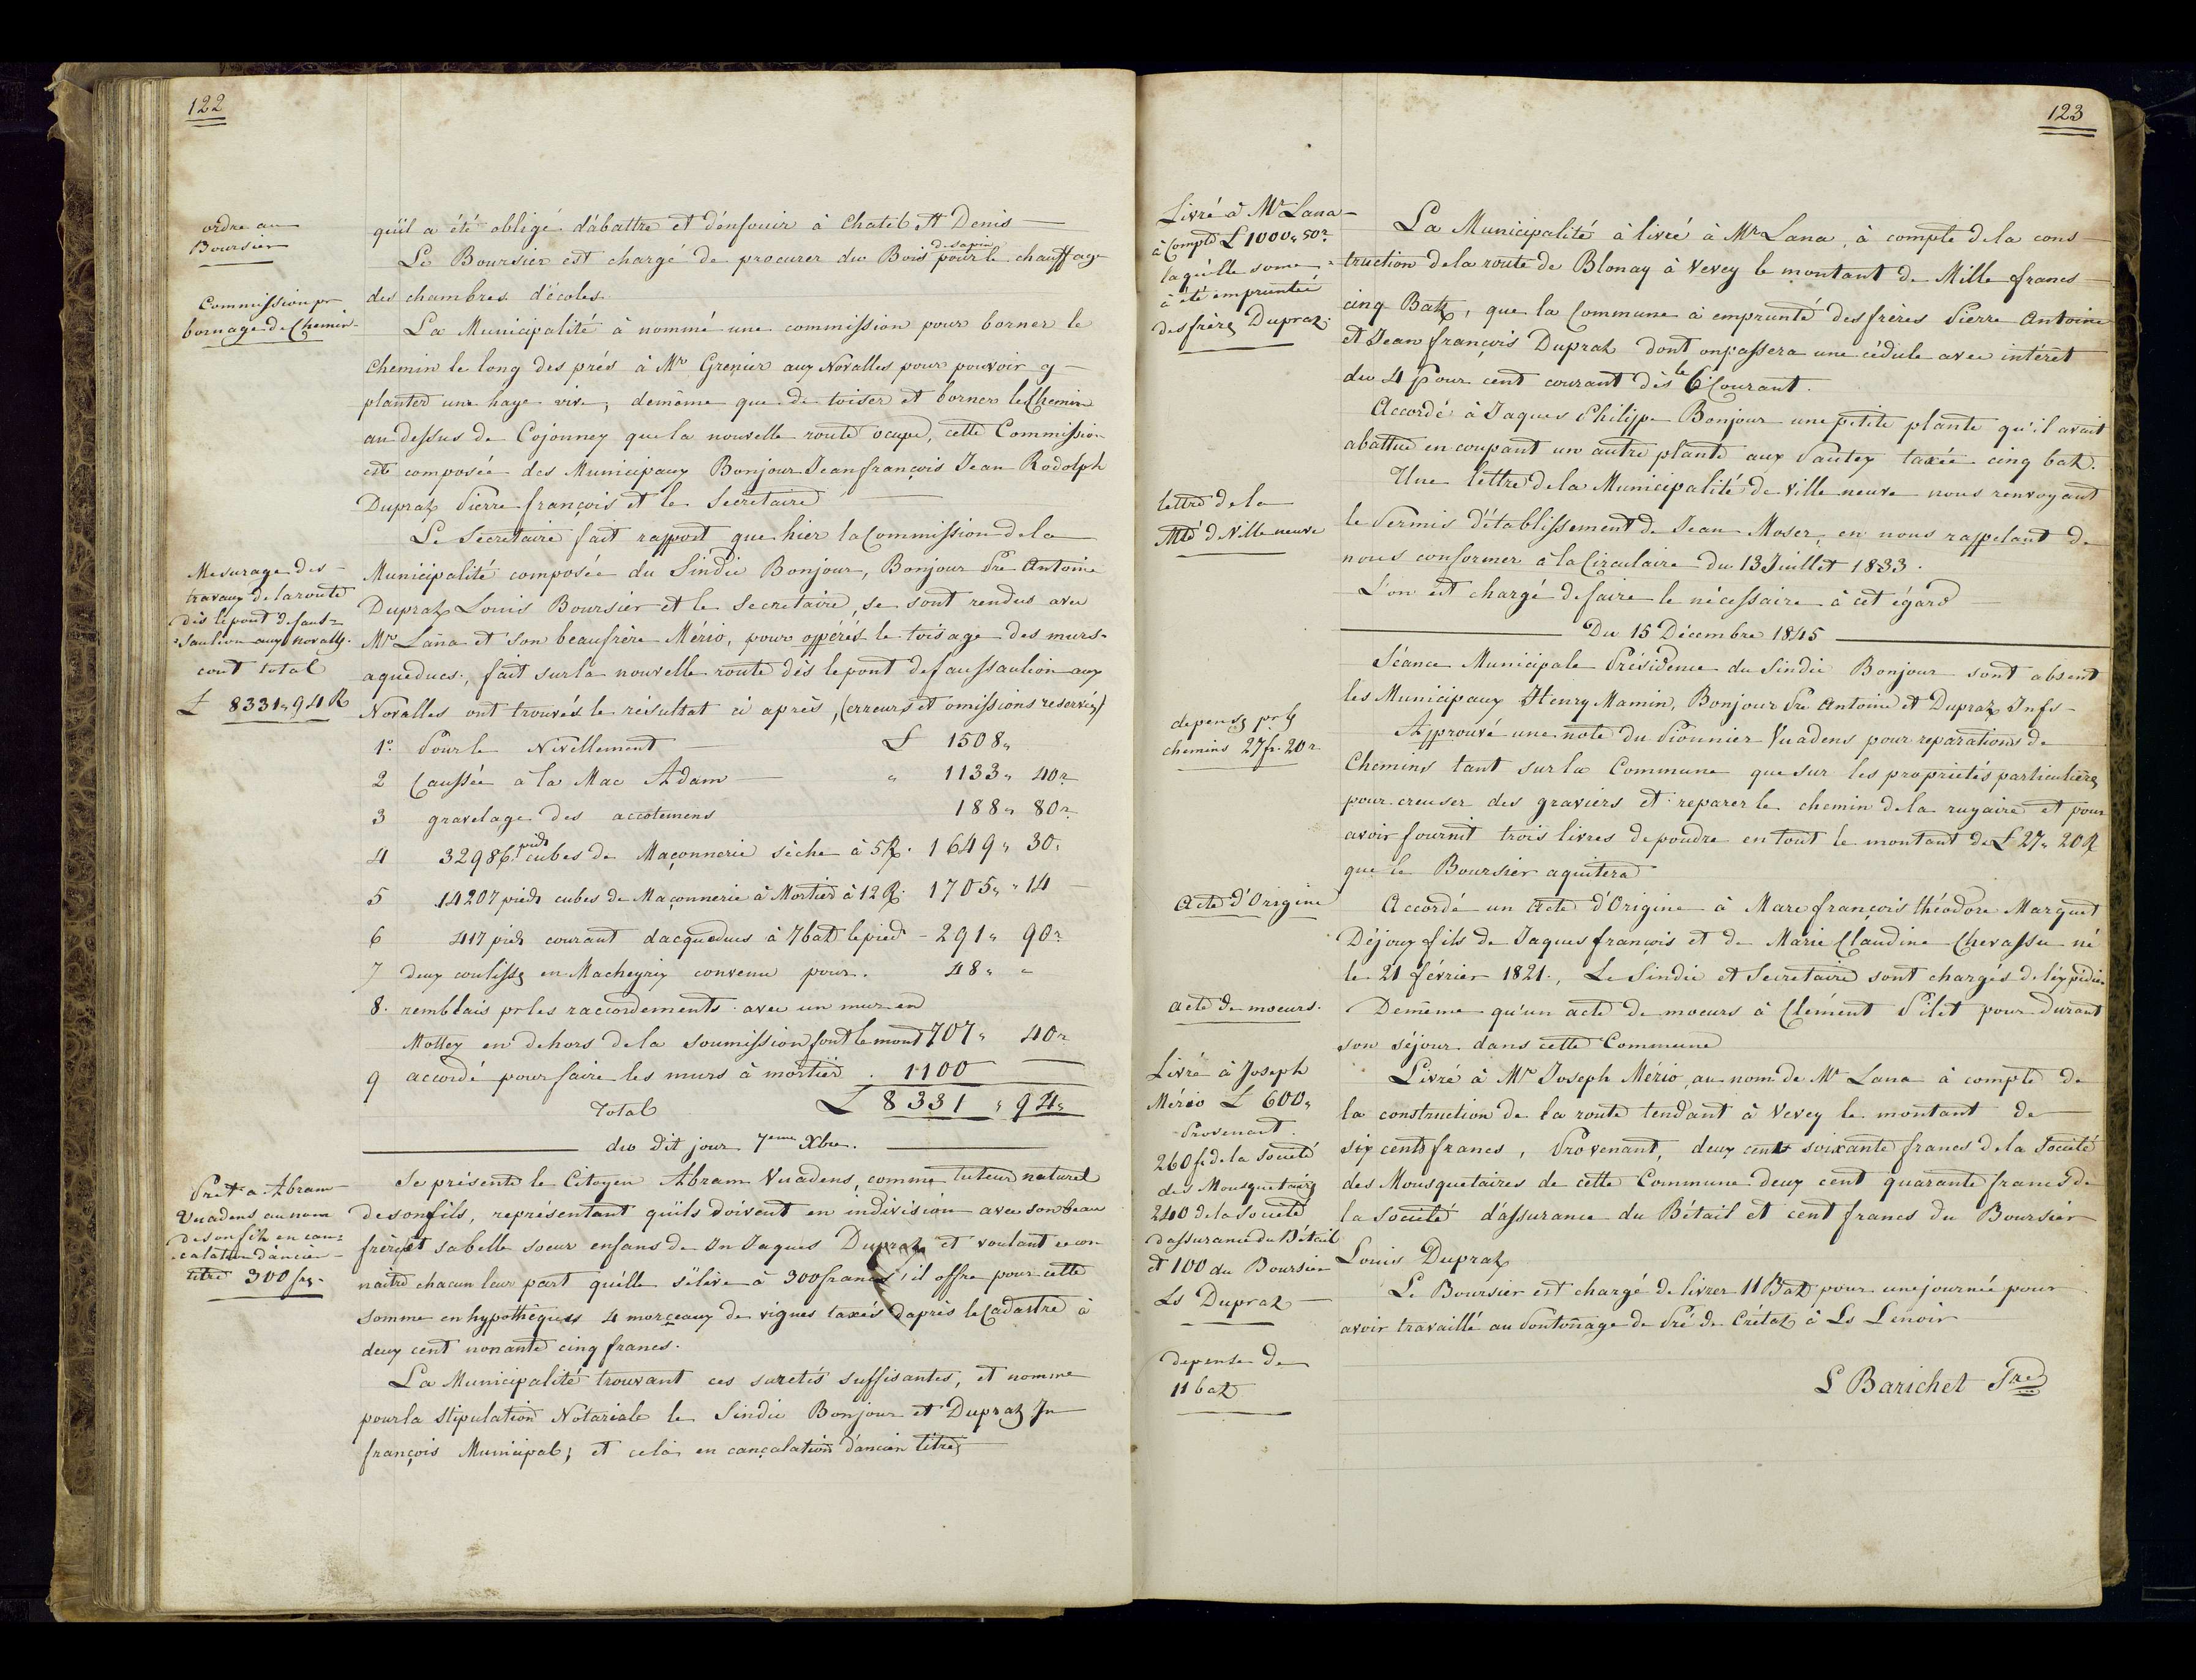 122
ordre au
Boursier
qu'il a été obligé d'abattre et d'enfouir à Chatel St Denis
Le Boursier est chargé de procurer du Bois de sapin pour le chauffage
des chambres d'écoles.
Commission pr
bornage de Chemin
La Municipalité à nommé une commission pour borner le
chemin le long des prés à Mr Grenier aux Novalles pour pouvoir y
planter une haye vive, demême que de toiser et borner le Chemin
au dessus de Cojonney que la nouvelle route ocupe, cette Commission
est composée des Municipaux Bonjour Jean françois Jean Rodolph
Dupraz Pierre françois et le Secretaire
Le Secretaire fait rapport que hier la Commission de la
Mesurage des
travaux de la route
dès le pont de faus=
=saulion aux novalles.
cout total
£ 8331 " 94 R
Municipalité composée du Sindic Bonjour, Bonjour Pre Antoine
Dupraz Louis Boursier et le Secretaire, se sont rendus avec
Mr Lana et son beaufrère Mério, pour opérés le toisage des murs
aqueducs, fait sur la nouvelle route dès le pont de faussaulion aux
Novalles ont trouvés le résultat ci après, (erreurs et omissions reservés)
1° Pour le Nivellement £ 1508 "
2 Caussée a la Mac Adam " 1133 " 40 r
3 gravelage des accotemens 188 " 80 r
4 32986 pieds cubes de Maçonnerie sèche à 5 R. 1649 " 30
5 14207 pieds cubes de Maçonnerie à Mortier à 12 R. 1705 " 14
6 417 pieds courant dacqueducs à 7 batz le pied - 291 " 90 r
7 deux coulisses en Macheyrix convenu pour. 48 " "
8. remblais pr les raccordements avec un mur en
Mottey en dehors de la soumission font le mont 707 " 40 r
9 accordé pour faire les murs à mortier . 1100
Total £ 8331 " 94 "
du dit jour 7eme Xbre.
Pret a Abram
Vuadens au nom
de son fils en can=
calation d'ancien
titre 300 frs
Se présente le Citoyen Abram Vuadens, comme tuteur naturel
de son fils, représentant qu'ils doivent en indivision avec son beau
frère et sa belle soeur enfans de Jn Jaques Dupraz et voulant recon
naitre chacun leur part qu'elle s'élève à 300 francs, il offre pour cette
somme en hypothèques 4 morçeaux de vignes taxés d'après le Cadastre à
deux cent nonante cinq francs.
La Municipalité trouvant ces suretés suffisantes, et nomme
pour la stipulation Notariale le Sindic Bonjour et Dupraz Jn
françois Municipal; et celà en cançalation d'ancien titre
123
Livré à Mr Lana
à Compte £ 1000 " 50 r
laqu'elle some
à été empruntée
des frères Dupraz
La Municipalité à livré à Mr Lana, à compte de la cons
truction de la route de Blonay à Vevey le montant de Mille francs
cinq Batz, que la Commune à emprunté des frères Pierre Antoine
et Jean françois Dupraz dont on passera une cédule avec intérêt
du 4 pour cent courant dès le 6 Courant.
Accordé à Jaques Philippe Bonjour une petite plante qu'il avait
abattue en coupant un autre plante aux Pautex taxée cinq batz.
lettre de la
Mté de Ville neuve
Une lettre de la Municipalité de Ville neuve nous renvoyant
le Permis d'établissement de Jean Moser, en nous rappelant de
nous conformer à la Circulaire du 13 Juillet 1833.
L'on est chargé de faire le nécessaire à cet égard
Du 15 Décembre 1845
Séance Municipale Présidence du Sindic Bonjour sont absent
les Municipaux Henry Mamin, Bonjour Pre Antoine et Dupraz Jn fs
depenses pr les
chemins 27 fr. 20 r
Approuvé une note du Pionnier Vuadens pour reparations de
Chemins tant sur la Commune que sur les proprietés particulières
pour creuser des graviers et reparer le chemin de la ruyaire et pour
avoir fournit trois livres de poudre en tout le montant de £ 27 " 20 R
que le Boursier aquitera
Acte d'Origine
Accordé un Acte d'Origine à Marc françois théodore Marguet
Déjoux fils de Jaques françois et de Marie Claudine Chevassu né
le 21 février 1821., Le Sindic et Secretaire sont chargés de l'éxpédier
acte de moeurs.
Demême qu'un acte de moeurs à Clément Pilet pour durant
son séjour dans cette Commune
Livré à Joseph
Mério £ 600 "
Provenant.
260 fr de la Societé
des Mousquetaires
240 de la Societé
d'assurance du Bétail
et 100 du Boursier
Ls Dupraz
Livré à Mr Joseph Mério, au nom de Mr Lana à compte de
la construction de la route tendant à Vevey le montant de
six cents francs, Provenant, deux cent soixante francs de la Societé
des Mousquetaires de cette Commune deux cent quarante francs de
la Societé d'assurance du Bétail et cent francs du Boursier
Louis Dupraz
depense de
11 batz
Le Boursier est chargé de livrer 11 Batz pour une journée pour
avoir travaillé au Pontonage de Pré de Crétaz à Ls Lenoir
L Barichet Sre